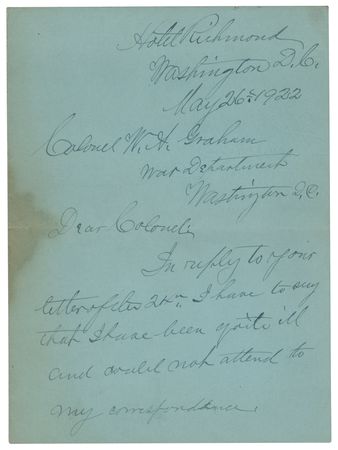 Hotel Richmond
Washington D.C.
May 26th 1922
Colonel W. A. Graham
War Department
Washington D.C.
Dear Colonel:
In reply to your
letter of the 24th I have to say
that I have been quite ill
and could not attend to
my correspondence.